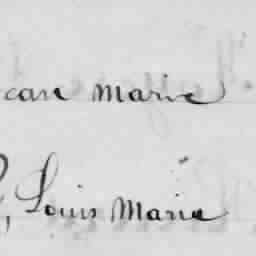 ean Marie
, Louis Marie